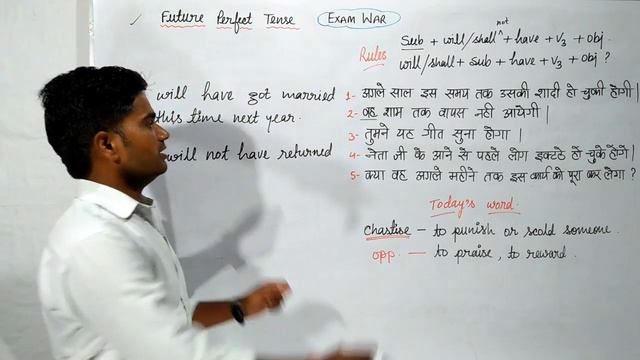 Future Perfect Tense
Exam War
Rules
Sub + will/shall ^not + have + V3 + obj.
will/shall + Sub + have + V3 + obj ?
will have got married
this time next year.
will not have returned
1- अगले साल इस समय तक उसकी शादी हो चुकी होगी |
2- वह शाम तक वापस नही आयेगी |
3- तुमने यह गीत सुना होगा |
4- नेता जी के आने से पहले लोग इकट्ठे हो चुके होंगे |
5- क्या वह अगले महीने तक इस कार्य को पूरा कर लेगा ?
Today's word.
Chastise - to punish or scold someone.
opp. - to praise, to reward.